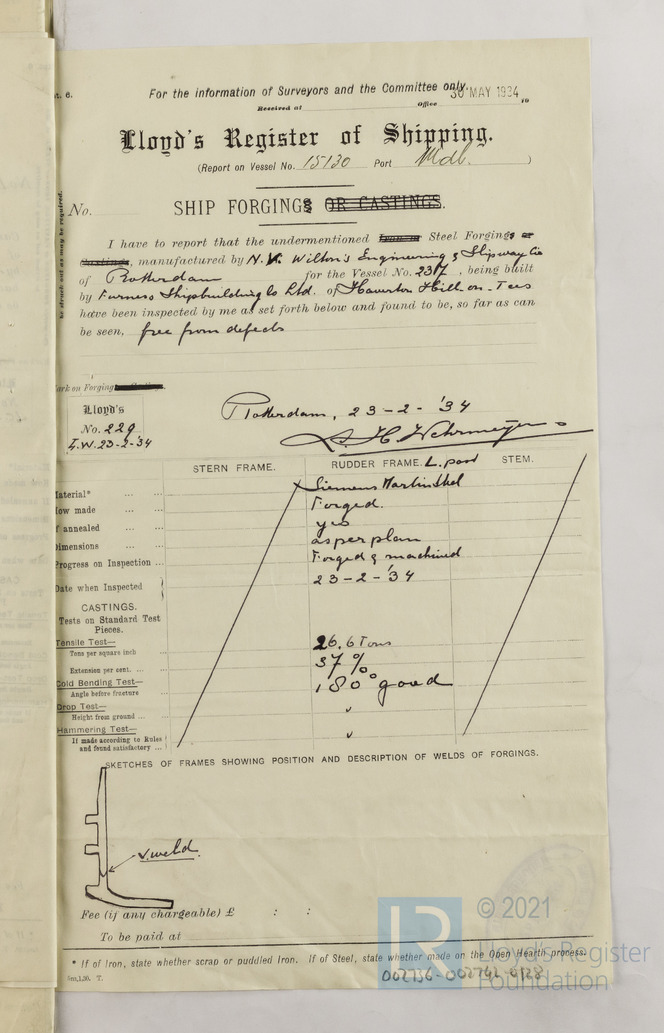 t. 6.
For the information of Surveyors and the Committee only.
30 MAY 1934
Received at Office 19
Lloyd's Register of Shipping.
(Report on Vessel No. 15130 Port Mdb. )
No.
SHIP FORGINGS OR CASTINGS.
be struck out as may be required.
I have to report that the undermentioned Iron or Steel Forgings or
Castings, manufactured by N.V. Wilton's Engineering & Slipway Co
of Rotterdam for the Vessel No. 237, being built
by Furness Shipbuilding Co Ltd. of Haverton Hill-on-Tees
have been inspected by me as set forth below and found to be, so far as can
be seen, free from defects
ark on Forging
Lloyd's
No. 229
I.W. 23-2-'34
Rotterdam, 23-2-'34
STERN FRAME. RUDDER FRAME. L. post STEM.
Material* ... ... Siemens Martin steel
How made ... ... Forged.
If annealed ... ... yes
Dimensions ... ... as per plan
Progress on Inspection ... Forged & machined
Date when Inspected 23-2-'34
CASTINGS.
Tests on Standard Test
Pieces.
Tensile Test—
Tons per square inch 26.6 Tons
Extension per cent. ... ... 37 %
Cold Bending Test—
Angle before fracture 180° good
Drop Test—
Height from ground ... ...
Hammering Test—
If made according to Rules
and found satisfactory ...
SKETCHES OF FRAMES SHOWING POSITION AND DESCRIPTION OF WELDS OF FORGINGS.
v. weld.
Fee (if any chargeable) £ : :
To be paid at
* If of Iron, state whether scrap or puddled Iron. If of Steel, state whether made on the Open Hearth process.
5m,1,30. T.
002736-002742-0128
LR
© 2021
Lloyd's Register
Foundation